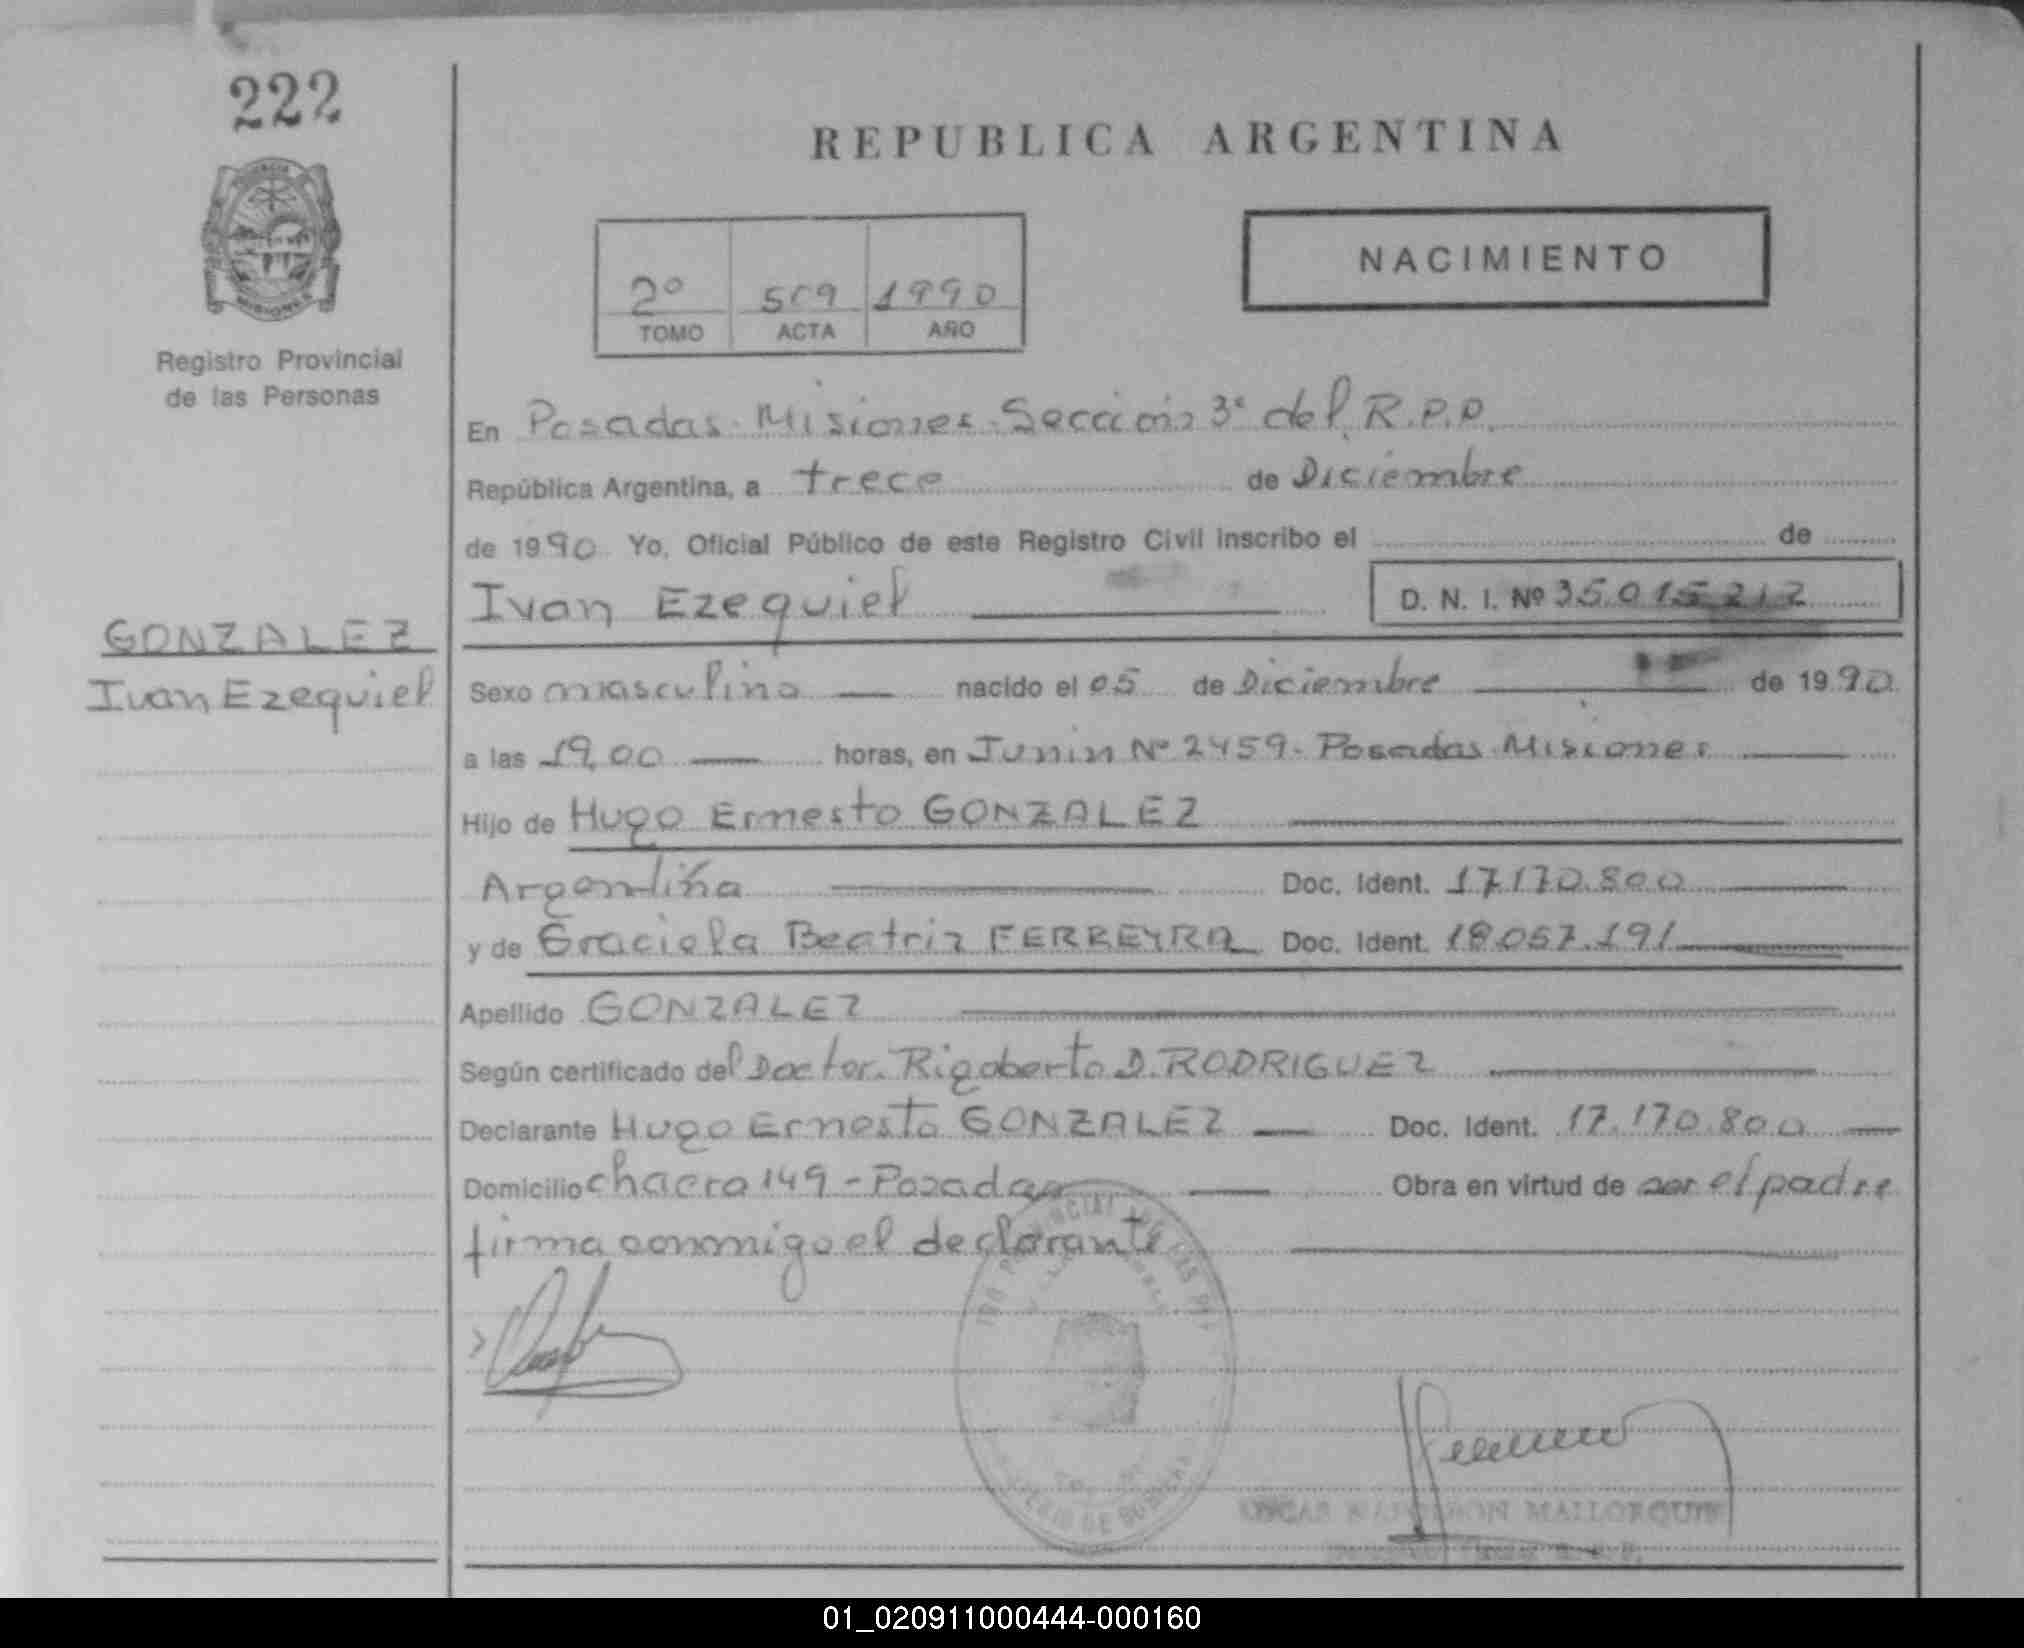 222
REPUBLICA ARGENTINA
NACIMIENTO
2º 1990
TOMO ACTA AÑO
MISIONES
Registro Provincial
de las Personas
En Posadas. Misiones. Sección 3ª del R.P.P.
República Argentina, a trece de Diciembre
de 1990 Yo, Oficial Público de este Registro Civil inscribo el de
Ivan Ezequiel D. N. I. Nº 35.015.212
GONZALEZ
Ivan Ezequiel
Sexo masculino nacido el 05 de Diciembre de 1990
a las 19,00 horas, en Junin Nº 2459. Posadas. Misiones
Hijo de Hugo Ernesto GONZALEZ
Argentina Doc. Ident. 17.170.800
y de Graciela Beatriz FERREYRA Doc. Ident. 18.057.191
Apellido GONZALEZ
Según certificado del Doctor. Rigoberto D. RODRIGUEZ
Declarante Hugo Ernesto GONZALEZ Doc. Ident. 17.170.800
Domicilio chacra 149 - Posadas Obra en virtud de ser el padre
firma conmigo el declarante
MALLORQUIN
01_020911000444-000160